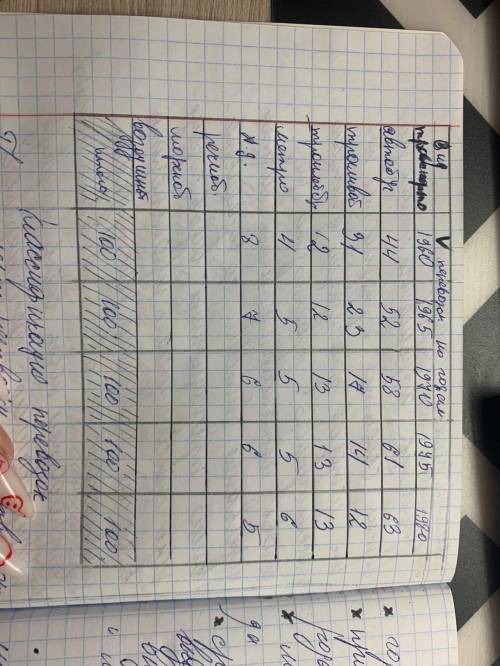 Вид V перевозок по годам
транспорта 1960 1965 1970 1975 1970
автобус 44 52 58 61 63
трамвай 31 23 17 14 12
троллейбус 12 12 13 13 13
метро 4 5 5 5 6
ж.д. 8 7 6 6 5
речной
морской
воздушный
итого 100 100 100 100 100
Классификация перевозок